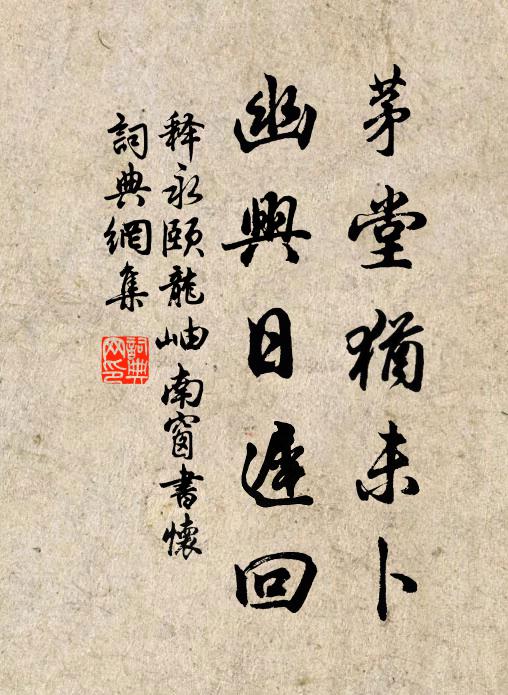 茅堂猶未卜
幽興日遲回
释永頤龍岫南窗書懷
詞典網集
詞典网印